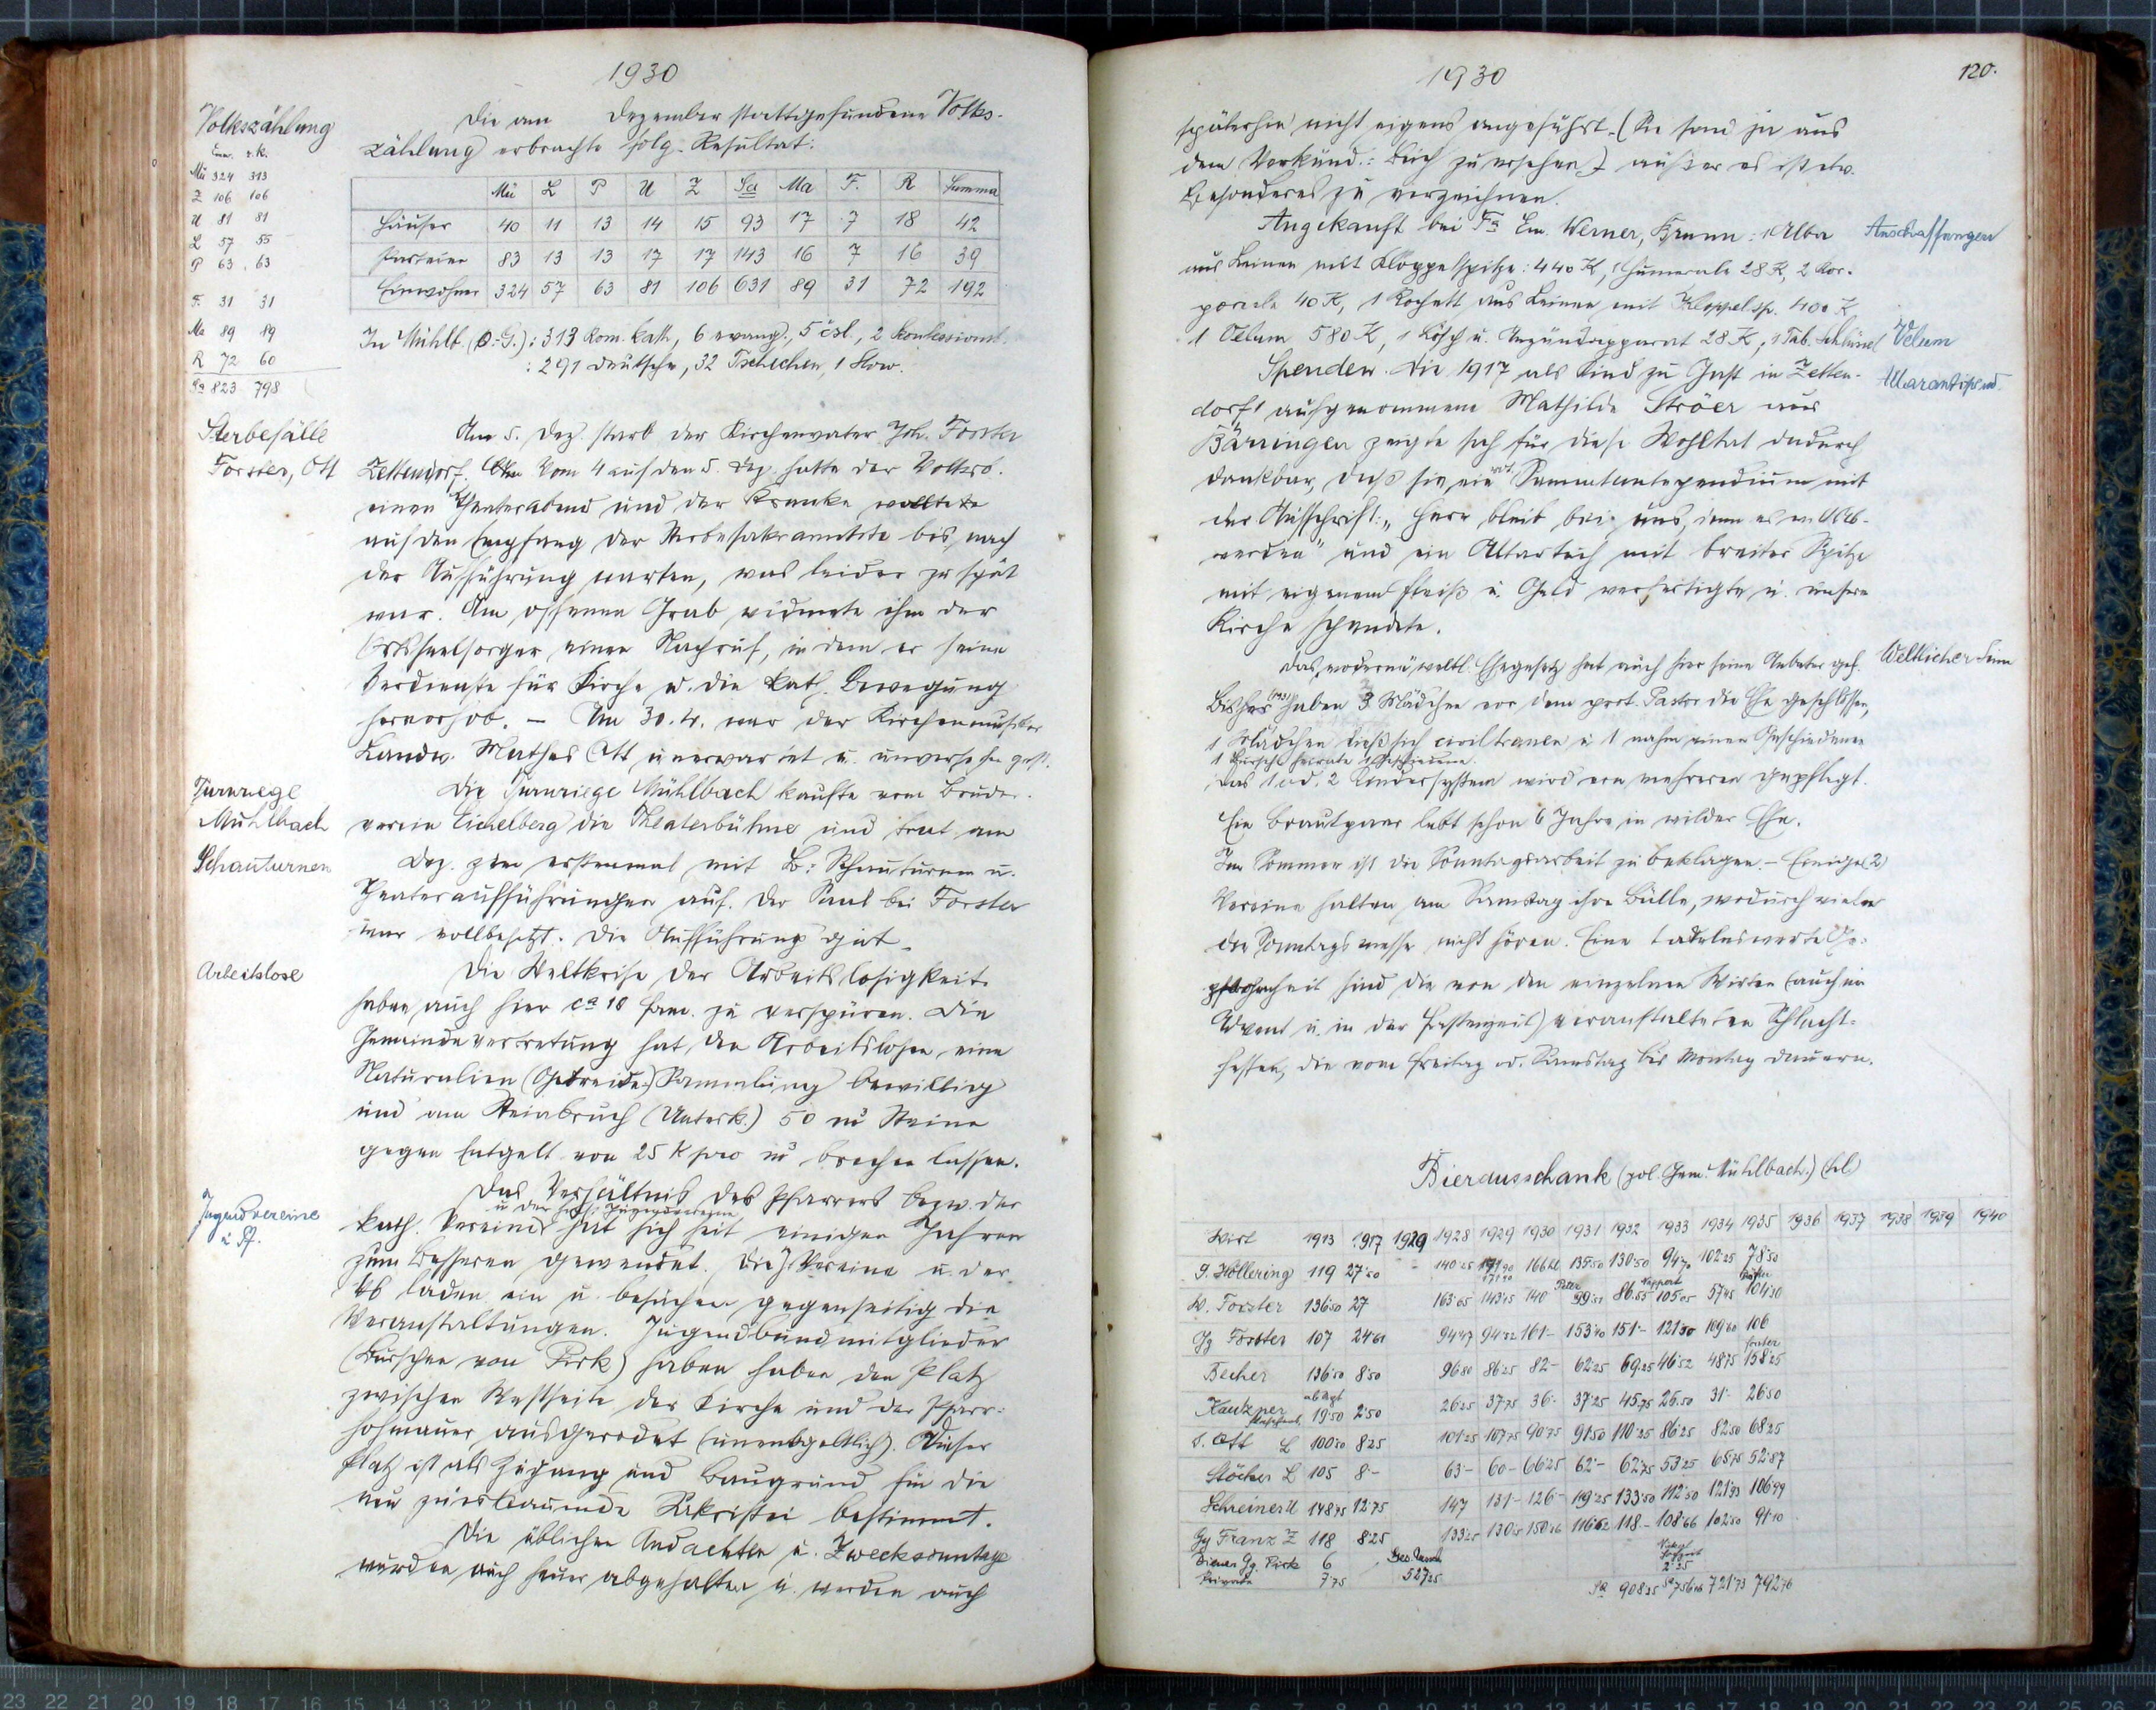 1930
Volkszählung
Einw. r.k.
Mü 324 313
Z 106 106
U 81 81
L 57 55
P 63 63
F. 31 31
Ma 89 89
R 72 60
Sa 823 798
Die am Dezember stattgefundene Volks-
zählung erbrachte folg. Resultat:
Mü L P U Z Sa Ma F. R Summa
Häuser 40 11 13 14 15 93 17 7 18 42
Parteien 83 13 13 17 17 143 16 7 16 39
Einwohner 324 57 63 81 106 631 89 31 72 192
In Mühlb. (O.G.): 313 Röm. kath, 6 evang., 5 čsl., 2 konfessionsl.
: 291 Deutsche, 32 Tschechen, 1 Slow.
Sterbefälle
Forster, Ott
Am 5. Dez. starb der Kirchenvater Joh. Forster
Zettendorf. Vom 4 auf den 5. Dez. hatte der Volksb.
einen Theaterabend und der Kranke wollte
auf den Empfang der Sterbesakramente bis nach
der Aufführung warten, was leider zu spät
war. Am offenen Grab widmete ihm der
Ortsseelsorger einen Nachruf, in dem er seine
Verdienste für Kirche u. die kath. Bewegung
hervorhob. – Am 30. war der Kirchenmusiker
Landw. Mathes Ott unerwartet u. unversehen gest.
Turnriege
Mühlbach
Schauturnen
Die Turnriege Mühlbach kaufte vom Bruder-
verein Eichelberg die Theaterbühne und trat am
Dez. zum erstenmal mit Schauturnen u.
Theateraufführungen auf. Der Saal bei Forster
war vollbesetzt. Die Aufführung gut.
Arbeitslose
Die Weltkrise der Arbeitslosigkeit
haben auch hier ca 10 Fam. zu verspüren. Die
Gemeindevertretung hat den Arbeitslosen eine
Naturalien (Getreide) Sammlung bewilligt
und am Steinbruch (Unterk.) 50 m³ Steine
gegen Entgelt von 25 K pro m³ brechen lassen.
Jugendvereine
Das Verhältnis des Pfarrers bezw. der
kath. Vereine hat sich seit einigen Jahren
zum Besseren gewendet. Die Vereine u. der
laden ein u. besuchen gegenseitig die
Veranstaltungen. Jugendbundmitglieder
(Burschen von Pirk) haben haben den Platz
zwischen Westseite der Kirche und der Pfarr-
hofmauer ausgerodet (unentgeltlich). Dieser
Platz ist als Zugang und Baugrund für die
neu zu erbauende Sakristei bestimmt.
Die üblichen Andachten u. Zwecksonntage
wurden auch heuer abgehalten u. werden auch
1930
120.
späterhin nicht eigens angeführt. (Sie sind ja aus
dem Verkünd.: Buch zu ersehen) außer es ist etw.
Besonderes zu verzeichnen.
Anschaffungen
Angekauft bei Fa Em. Werner, Brünn: 1 Alba
aus Leinen mit Kloppelspitze: 440 K, 1 Humerale 28 K, 2 Kor-
porale 40 K, 1 Rochett aus Leinen mit Kloppelsp. 400 K
1 Velum 580 K, 1 Lösch u. Anzündapparat 28 K, 1 Tab. Schlüssel
Velum
Spenden. Die 1917 als Kind zu Gast in Zetten-
dorf 1 aufgenommene Mathilde Ströer aus
Bärringen zeigte sich für diese Wohltat dadurch
dankbar, daß sie ein rot. Samtantependium mit
der Aufschrift: „Herr bleib bei uns, denn es will Ab-
werden“ und ein Altartuch mit breiter Spitze
mit eigenem Fleiß u. Geld verfertigte u. unserer
Kirche spendete.
Weltlicher Sinn
Das „moderne“ weltl. Ehegesetz hat auch hier seine Anbeter gef.
Bisher haben 3 Mädchen vor dem prot. Pastor die Ehe geschlossen,
1 Mädchen ließ sich civiltrauen u. 1 nahm einen Geschiedenen
Das 1 od. 2 Kindersystem wird von mehreren gepflegt.
Ein Brautpaar lebt schon 6 Jahre in wilder Ehe.
Im Sommer ist die Sonntagsarbeit zu beklagen. – Einige (2)
Vereine halten am Samstag ihre Bälle, wodurch viele
die Sonntagsmesse nicht hören. Eine tadelnswerte Ge-
pflogenheit sind die von den einzelnen Wirten (auch im
Advent u. in der Fastenzeit) veranstalteten Schlacht-
festen, die vom Freitag od. Samstag bis Montag dauern.
Bierausschank (pol. Gem. Mühlbach.) (hl.)
Wirt 1913 1917 1929 1928 1929 1930 1931 1932 1933 1934 1935 1936 1937 1938 1939 1940
Höllering 119 27'50 140'25 166 hl 135'50 130'50 94'70 102'25 78'50
W. Forster 136'50 27 163'65 143'15 140 99'51 86'55 105'05 57'45 104'30
Jg Forster 107 24'61 94'47 94'32 161- 153'40 151- 121'30 109'60 106
Becher 136'50 8'50 96'80 86'25 82- 62'25 69'25 46'52 48'75 158'25
Kautzner 19'50 2'50 26'25 37'75 36- 37'25 45'75 26'50 31- 26'50
Ott L 100'50 8'25 101'25 107'75 90'75 91'50 110'25 86'25 82'50 68'25
Stöcker L 105 8- 63- 60- 66'25 62- 62'75 53'25 65'75 52'87
Schreiner U 148'75 12'75 147 131- 126- 119'25 133'50 112'50 121'93 106'99
Gg Franz Z 118 8'25 133'25 130'5 150'16 116'62 118- 108'66 102'50 91'10
Gg. Pirk 6
Private 7'75
527'25
2'25
Sa 908'25 756'16 721'73 792'76